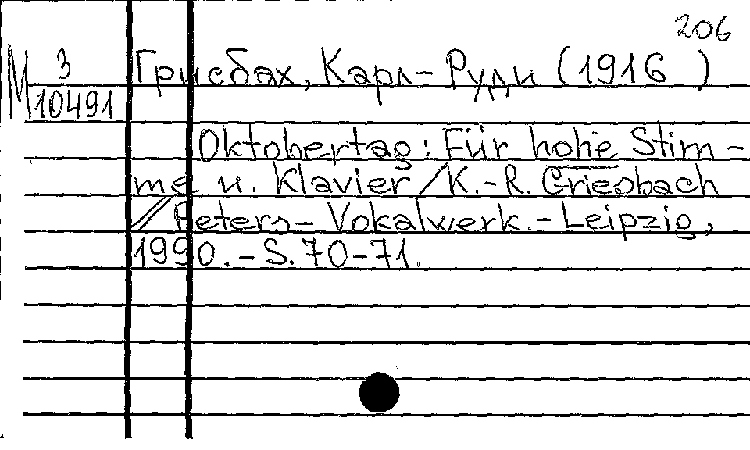 206
М 3 Грисбах, Карл-Руди (1916 )
10491
Oktobertag: Für hohe Stim-
me u. Klavier / K.-R. Griesbach
// Peters-Vokalwerk.-Leipzig,
1990.-S.70-71.